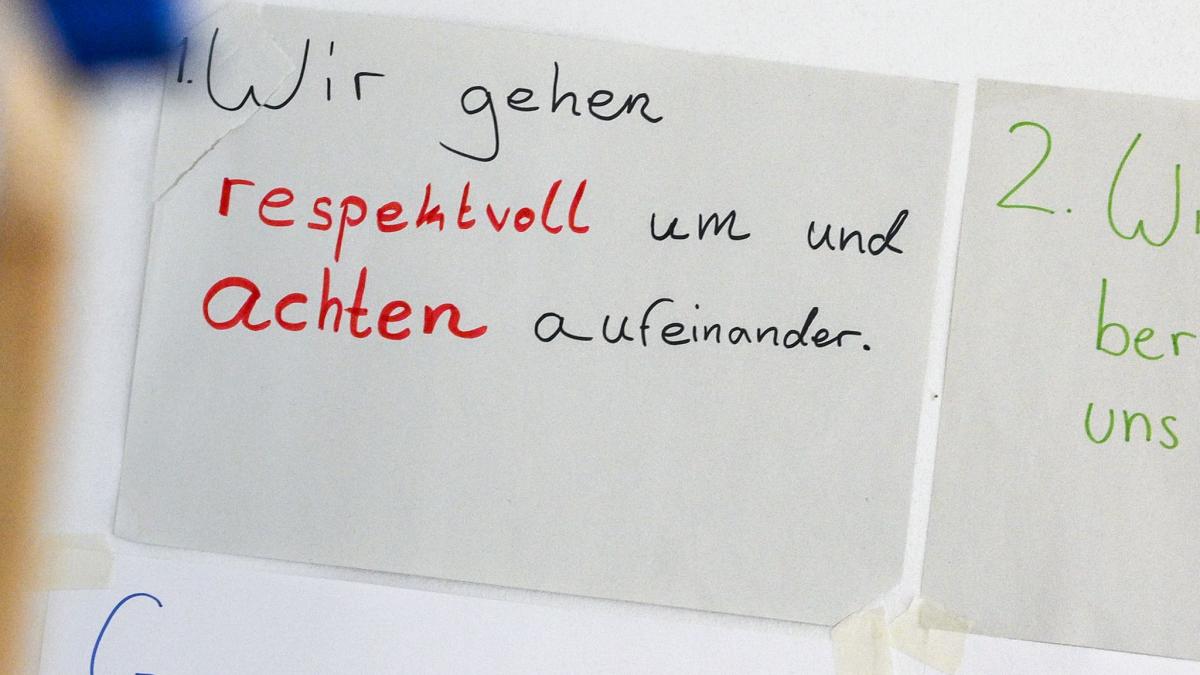 1. Wir gehen
respektvoll um und
achten aufeinander.
2. Wi
ber
uns
G